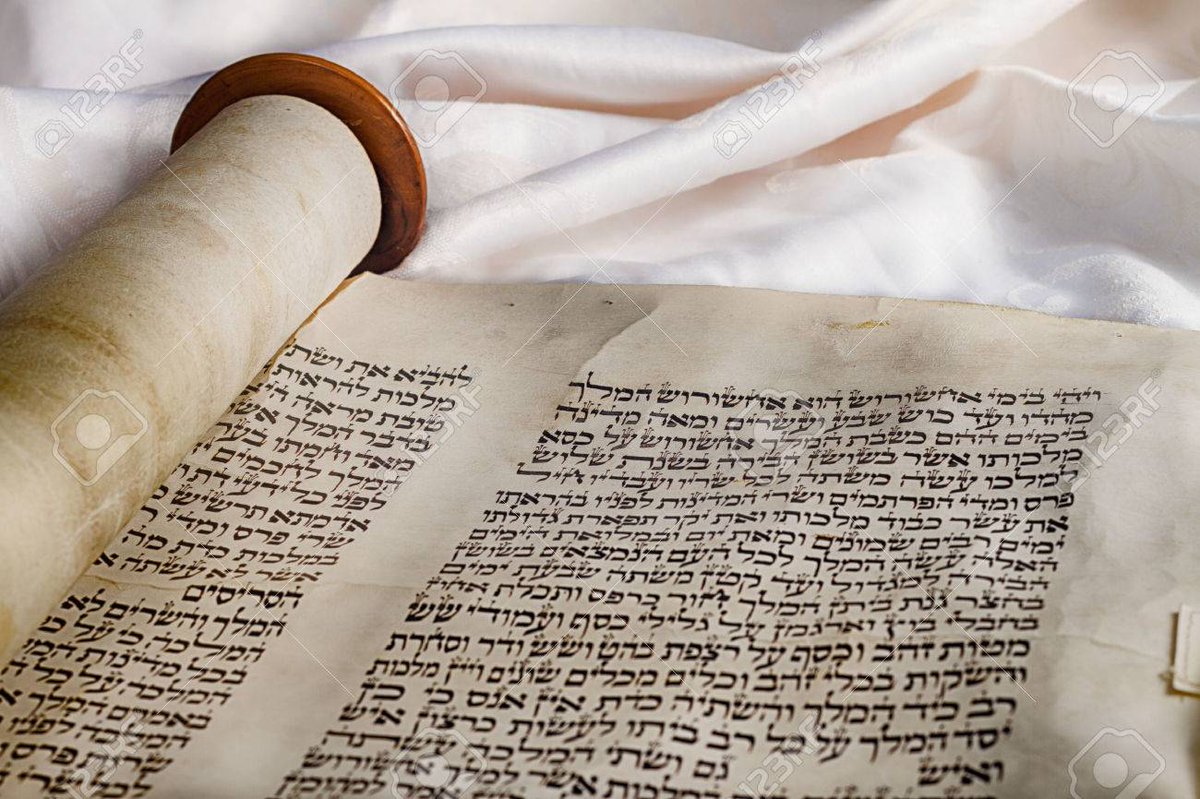 ויהי בימי אחשורוש הוא אחשורוש המלך
מהדו ועד כוש שבע ועשרים ומאה מדינה
בימים ההם כשבת המלך אחשורוש על כסא
מלכותו אשר בשושן הבירה בשנת שלוש
למלכו עשה משתה לכל שריו ועבדיו חיל
פרס ומדי הפרתמים ושרי המדינות לפניו בהראתו
את עשר כבוד מלכותו ואת יקר תפארת גדולתו
ימים רבים שמונים ומאת יום ובמלואת הימים
האלה עשה המלך לכל העם הנמצאים בשושן
הבירה למגדול ועד קטן משתה שבעת ימים
בחצר גנת ביתן המלך חור כרפס ותכלת אחוז
בחבלי בוץ וארגמן על גלילי כסף ועמודי שש
מטות זהב וכסף על רצפת בהט ושש ודר וסחרת
והשקות בכלי זהב וכלים מכלים שונים ויין מלכות
רב כיד המלך והשתיה כדת אין אנס כי כן
יסד המלך על כל רב ביתו לעשות כרצון איש
ואיש גם ושתי המלכה עשתה
אשר למלך אחשורוש
להביא את ושתי
מלכות להראות
טובת מראה היא
בדבר המלך אשר
מאד וחמתו בערה
המלך לחכמים
לפני כל ידעי דת
אדמתא תרשיש
שרי פרס ומדי
במלכות כדת מה
אשר לא עשתה את
הסריסים
המלך והשרים לא
המלך כי על כל
בכל מדינות
המלכה על כל
באמרם המלך
המלכה לפניו
שרות פרס
שרי המלך
123RF